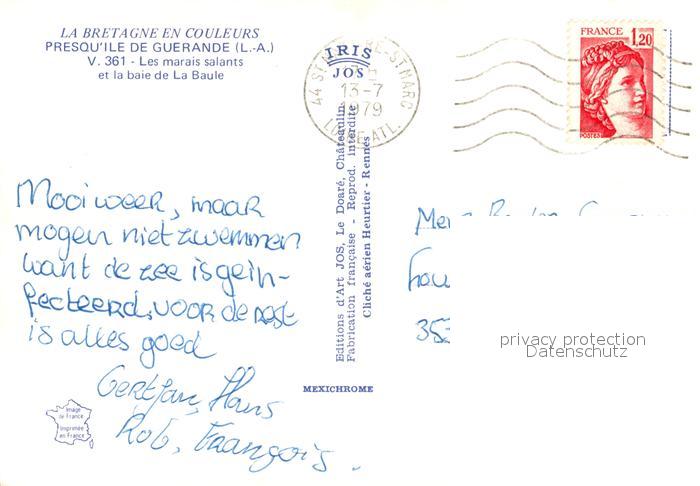 LA BRETAGNE EN COULEURS
PRESQU'ILE DE GUERANDE (L.-A.)
V. 361 - Les marais salants
et la baie de La Baule
IRIS
JOS
44 ST MARC
13-7
1979
ATL.
FRANCE 1,20
POSTES
Mooi weer, maar
mogen niet zwemmen
want de zee is geïn-
fecteerd, voor de rest
is alles goed
Gertjan, Hans
Rob, François.
Editions d'Art JOS, Le Doaré, Châteaulin
Fabrication française - Reprod. interdite
Cliché aérien Heurtier - Rennes
MEXICHROME
Image
de France
Imprimée
en France
privacy protection
Datenschutz